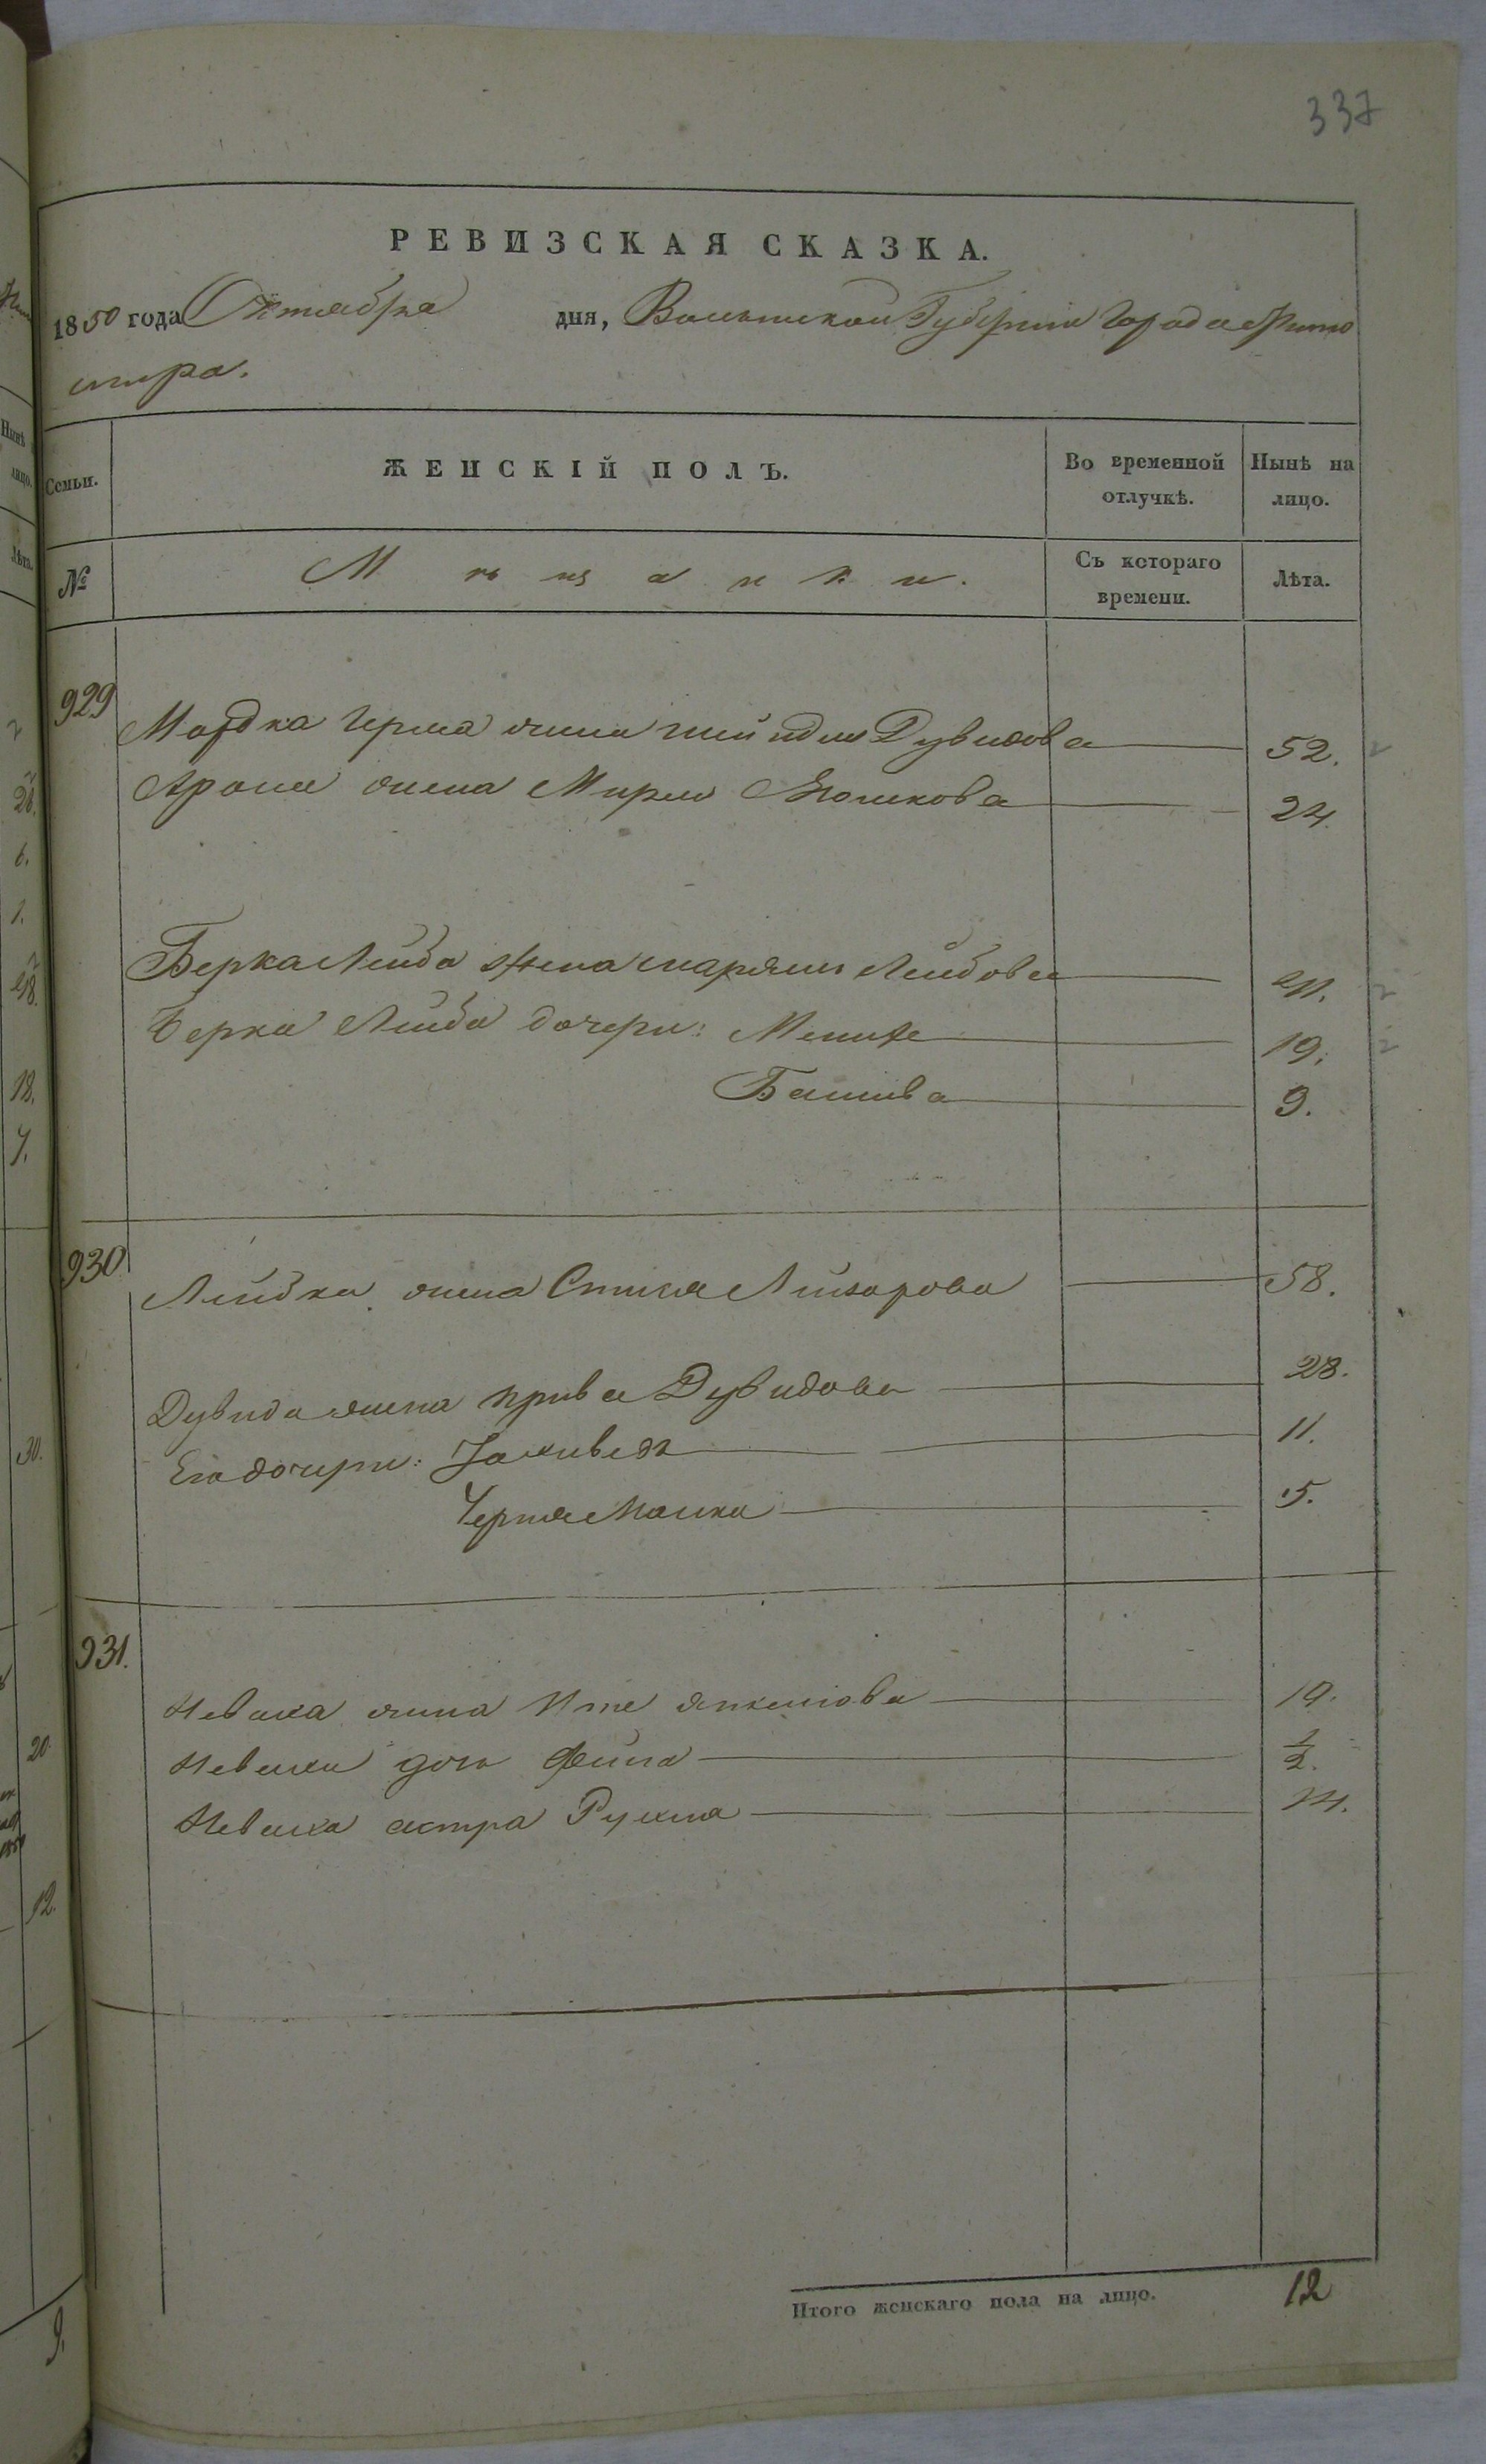 337
РЕВИЗСКАЯ СКАЗКА.
1850 года Октября дня, Волынской Губернии Города Жито
мира.
Семьи. ЖЕНСКІЙ ПОЛЪ. Во временной отлучкѣ. Нынѣ на лицо.
№ Мѣщанки. Съ котораго времени. Лѣта.
929
Мордка Герша жена Дувидова 52.
Арона жена Мирля 24.
Берка Лейба жена Марьям Лейбова 41.
Берка Лейба дочери: 19.
Башива 9.
930
Лейбка жена Лейзорова 58.
Дувида жена Дувидова 28.
Его дочери: 11.
Черня Малка 5.
931.
жена Ите Янкелова 19.
дочь Фейга 1/2.
сестра Рухля 14.
Итого женскаго пола на лицо. 12